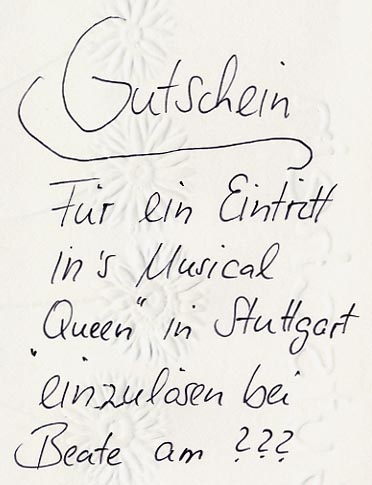 Gutschein
Für ein Eintritt
in's Musical
„Queen" in Stuttgart
einzulösen bei
Beate am ???